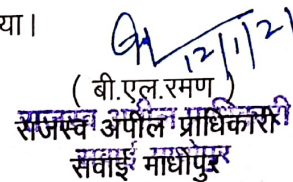 या।
12/1/21
( बी.एल.रमण )
राजस्व अपील प्राधिकारी
सवाई माधोपुर